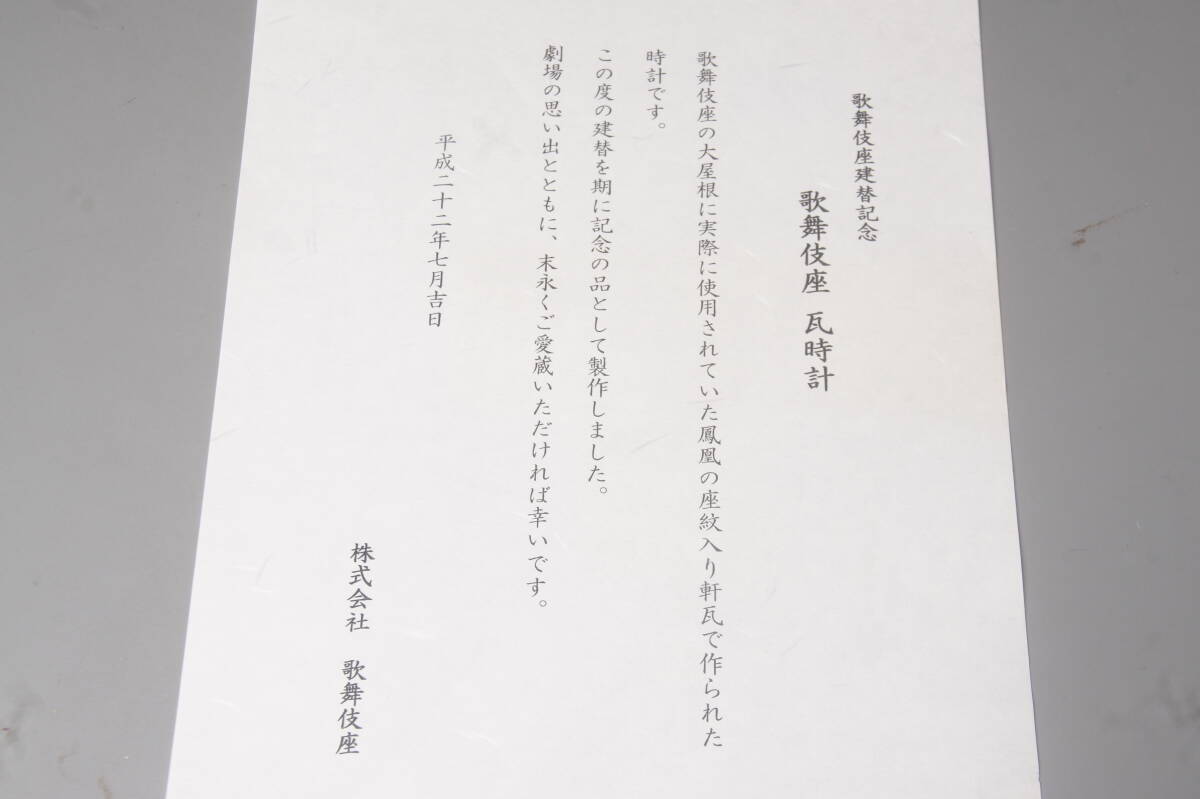 歌舞伎座建替記念
歌舞伎座 瓦時計
歌舞伎座の大屋根に実際に使用されていた鳳凰の座紋入り軒瓦で作られた
時計です。
この度の建替を期に記念の品として製作しました。
劇場の思い出とともに、末永くご愛蔵いただければ幸いです。
平成二十二年七月吉日
株式会社 歌舞伎座